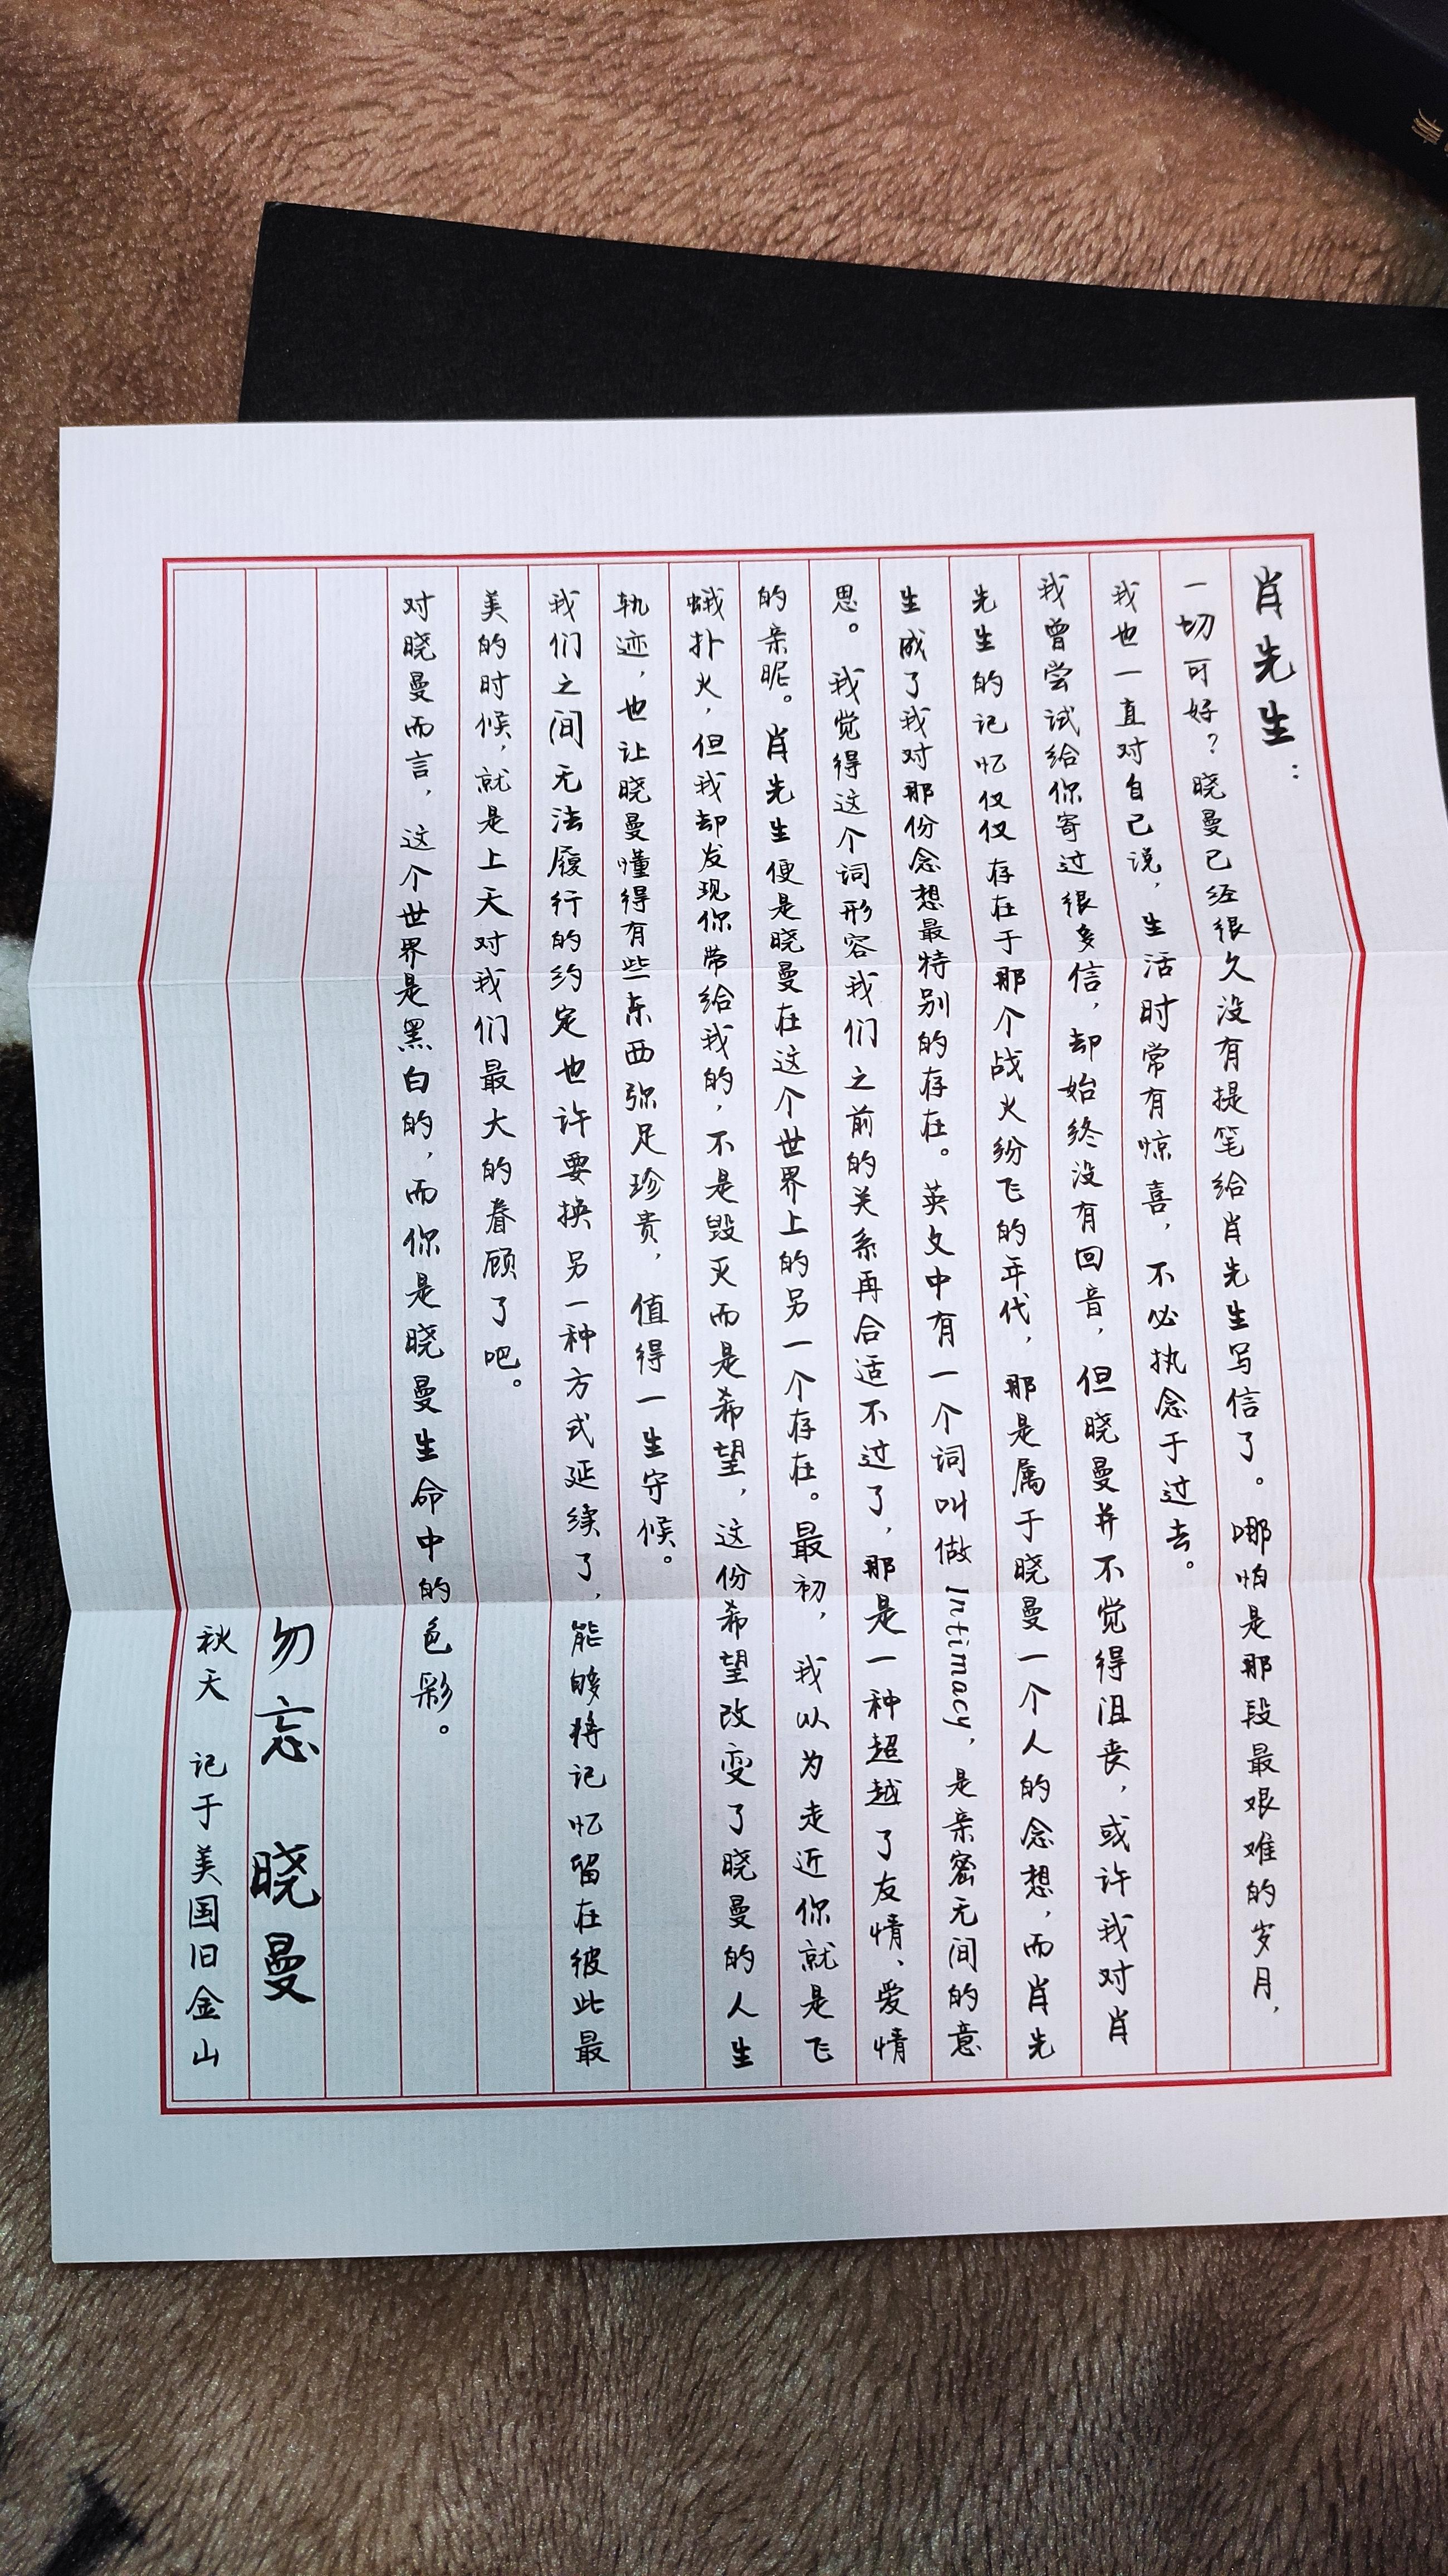 肖先生：
一切可好？晓曼已经很久没有提笔给肖先生写信了。哪怕是那段最艰难的岁月，
我也一直对自己说，生活时常有惊喜，不必执念于过去。
我曾尝试给你寄过很多信，却始终没有回音，但晓曼并不觉得沮丧，或许我对肖
先生的记忆仅仅存在于那个战火纷飞的年代，那是属于晓曼一个人的念想，而肖先
生成了我对那份念想最特别的存在。英文中有一个词叫做Intimacy，是亲密无间的意
思。我觉得这个词形容我们之前的关系再合适不过了，那是一种超越了友情、爱情
的亲昵。肖先生便是晓曼在这个世界上的另一个存在。最初，我以为走近你就是飞
蛾扑火，但我却发现你带给我的，不是毁灭而是希望，这份希望改变了晓曼的人生
轨迹，也让晓曼懂得有些东西弥足珍贵，值得一生守候。
我们之间无法履行的约定也许要换另一种方式延续了，能够将记忆留在彼此最
美的时候，就是上天对我们最大的眷顾了吧。
对晓曼而言，这个世界是黑白的，而你是晓曼生命中的色彩。
勿忘 晓曼
秋天 记于美国旧金山